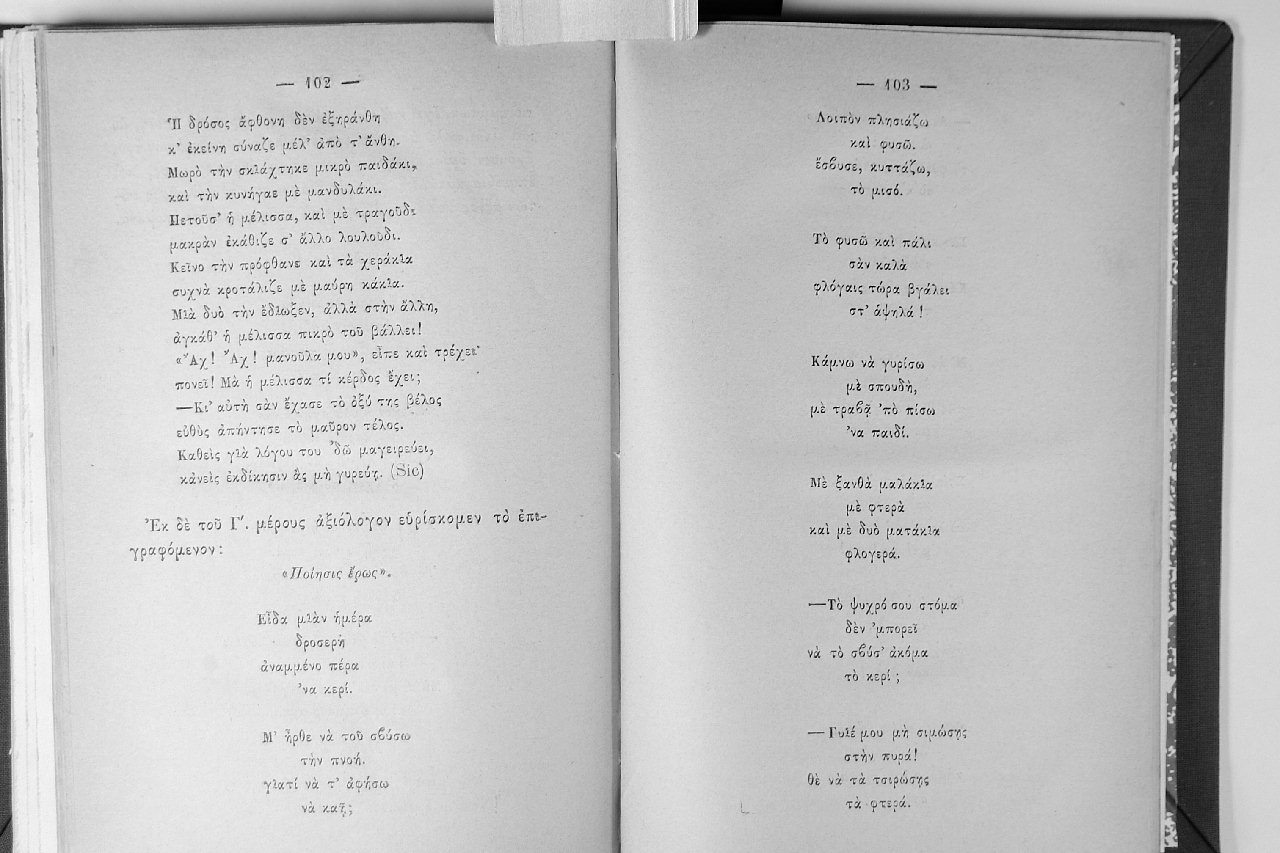 — 102 —
Ἡ δρόσος ἄφθονη δὲν ἐξηράνθη
κ' ἐκείνη σύναζε μέλ' ἀπὸ τ' ἄνθη.
Μωρὸ τὴν σκιάχτηκε μικρὸ παιδάκι,
καὶ τὴν κυνήγαε μὲ μανδυλάκι.
Πετοῦσ' ἡ μέλισσα, καὶ μὲ τραγοῦδι
μακρὰν ἐκάθιζε σ' ἄλλο λουλοῦδι.
Κεῖνο τὴν πρόφθανε καὶ τὰ χεράκια
συχνὰ κροτάλιζε μὲ μαύρη κάκια.
Μιὰ δυὸ τὴν ἔδιωξεν, ἀλλὰ στὴν ἄλλη,
ἀγκάθ' ἡ μέλισσα πικρὸ τοῦ βάλλει!
«Ἄχ! Ἄχ! μανοῦλα μου», εἶπε καὶ τρέχει·
πονεῖ! Μὰ ἡ μέλισσα τί κέρδος ἔχει;
—Κι' αὐτὴ σὰν ἔχασε τὸ ὀξύ της βέλος
εὐθὺς ἀπήντησε τὸ μαῦρον τέλος.
Καθεὶς γιὰ λόγου του 'δῶ μαγειρεύει,
κάνεὶς ἐκδίκησιν ἂς μὴ γυρεύῃ. (Sic)
Ἐκ δὲ τοῦ Γ΄. μέρους ἀξιόλογον εὑρίσκομεν τὸ ἐπι-
γραφόμενον:
«Ποίησις ἔρως».
Εἶδα μιὰν ἡμέρα
δροσερὴ
ἀναμμένο πέρα
'να κερί.
Μ' ἦρθε νὰ τοῦ σβύσω
τὴν πνοή.
γιατί νὰ τ' ἀφήσω
νὰ καῇ;
— 103 —
Λοιπὸν πλησιάζω
καὶ φυσῶ.
ἔσβυσε, κυττάζω,
τὸ μισό.
Τὸ φυσῶ καὶ πάλι
σὰν καλὰ
φλόγαις τώρα βγάλει
στ' ἁψηλά!
Κάμνω νὰ γυρίσω
μὲ σπουδὴ,
μὲ τραβᾷ 'πὸ πίσω
'να παιδί.
Μὲ ξανθὰ μαλάκια
μὲ φτερὰ
καὶ μὲ δυὸ ματάκια
φλογερά.
—Τὸ ψυχρό σου στόμα
δὲν 'μπορεῖ
νὰ τὸ σβύσ' ἀκόμα
τὸ κερί;
—Γυιέ μου μὴ σιμώσῃς
στὴν πυρά!
θὲ νὰ τὰ τσιρώσῃς
τὰ φτερά.